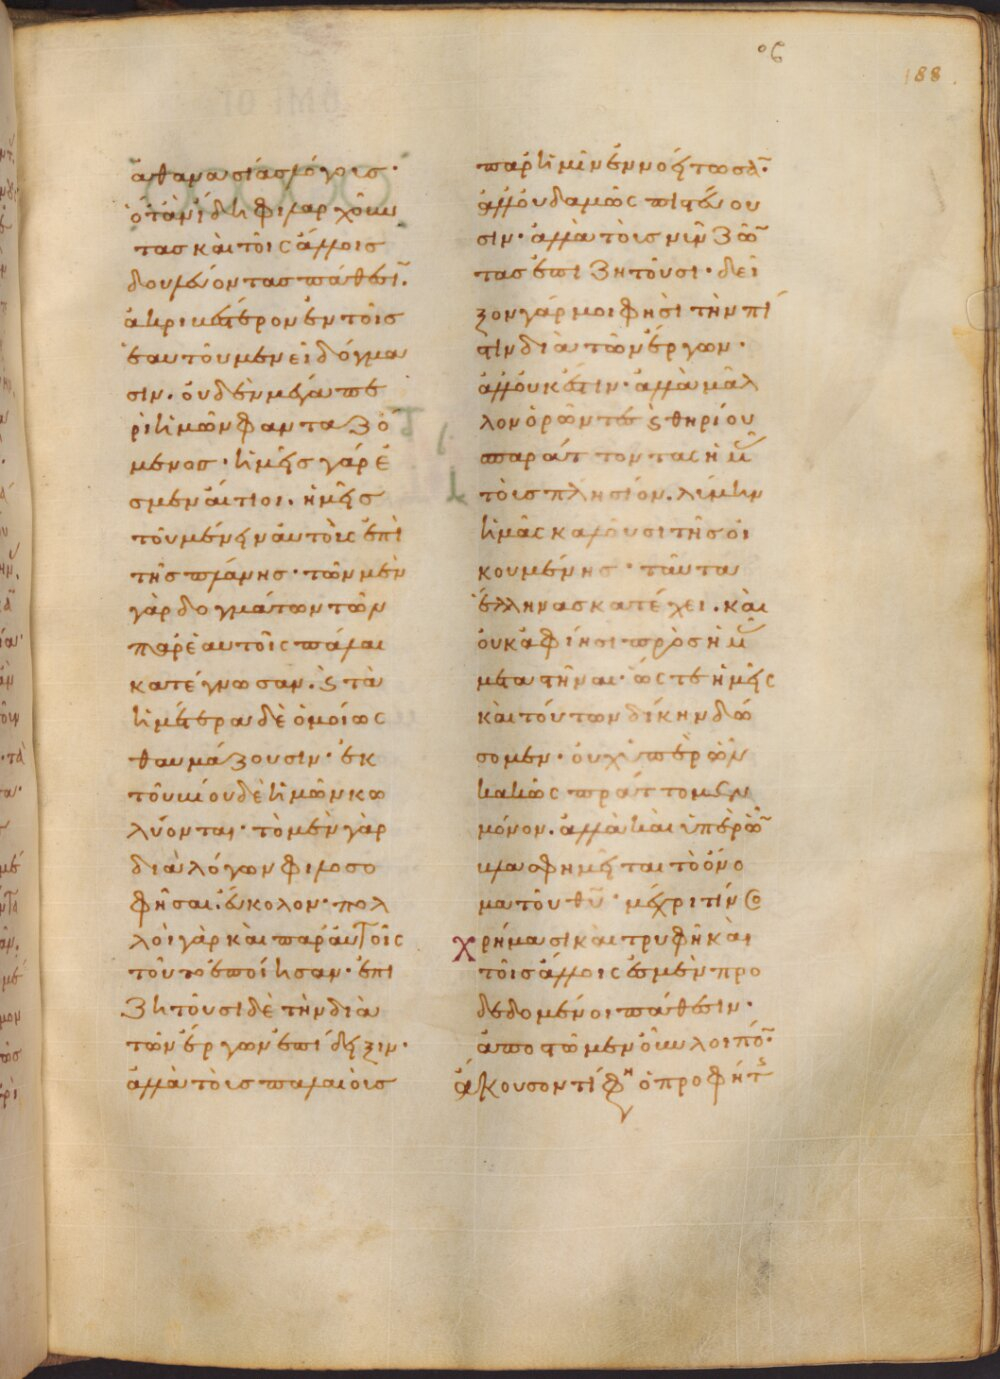 οϛ
188
ἀθανασίας λόγοις·
ὅταν ἴδη φιλαρχοῦν
τας καὶ τοῖς ἄλλοις
δουλεύοντας πάθεσι̅.
ἀκριβέστερον ἐν τοῖς
ἑαυτοῦ μένει δόγμα
σιν. οὐδὲν μέγα πε
ρὶ ἡμῶν φανταζό
μενος· ἡμεῖς γάρ ἐ
σμεν αἴτιοι. ἡμεῖς
τοῦ μένειν αὐτοὺς ἐπὶ
τῆς πλάνης· τῶν μὲν
γὰρ δογμάτων τῶν
παρ ἑαυτοῖς πάλαι
κατέγνωσαν. ϛ τὰ
ἡμέτερα δὲ ὁμοίως
θαυμάζουσιν· ἐκ
τοῦ βίου δὲ ἡμῶν κω
λύονται· τὸ μὲν γὰρ
διὰ λόγων φιλοσο
φῆσαι. εὔκολον· πολ
λοὶ γὰρ καὶ παρ αὐτοῖς
τοῦτο ἐποίησαν· ἐπι
ζητοῦσι δὲ τὴν διὰ
τῶν ἔργων ἐπίδειξιν·
ἀλλὰ τοὺς παλαιοὺς
παρ ἡμῖν ἐννοείτωσα̅·
ἀλλ οὐδαμῶς πιστεύου
σιν· ἀλλὰ τοὺς νῦν ζῶ̅
τας ἐπιζητοῦσι· δεῖ
ξον γάρ μοι φησὶ τὴν πί
στιν διὰ τῶν ἔργων·
ἀλλ οὐκ ἔστιν· ἀλλὰ μᾶλ
λον ὁρῶντες ϛ θηρίου
σπαράττοντας ἡμ
τοὺς πλησίον. λύμην
ἡμᾶς καλοῦσι τῆς οἰ
κουμένης· ταῦτα
ἕλληνας κατέχει. καὶ
οὐκ ἀφίησι πρὸς ἡμ
μεταστῆναι· ὥστε ἡμεῖς
καὶ τούτων δίκην δώ
σομεν· οὐχ ὑπὲρ ὧν
κακῶς πράττομεν
μόνον. ἀλλὰ καὶ ὑπὲρ ὧ̅
βλασφημεῖται τὸ ὄνο
μα τοῦ θυ̅· μέχρι τίνος
χρήμασι καὶ τρυφῆ καὶ
τοῖς ἄλλοις ἐσμὲν προ
δεδομένοι πάθεσιν·
ἀποστῶμεν οὖν λοιπό̅·
ἄκουσον τί φη ὁ προφήτς